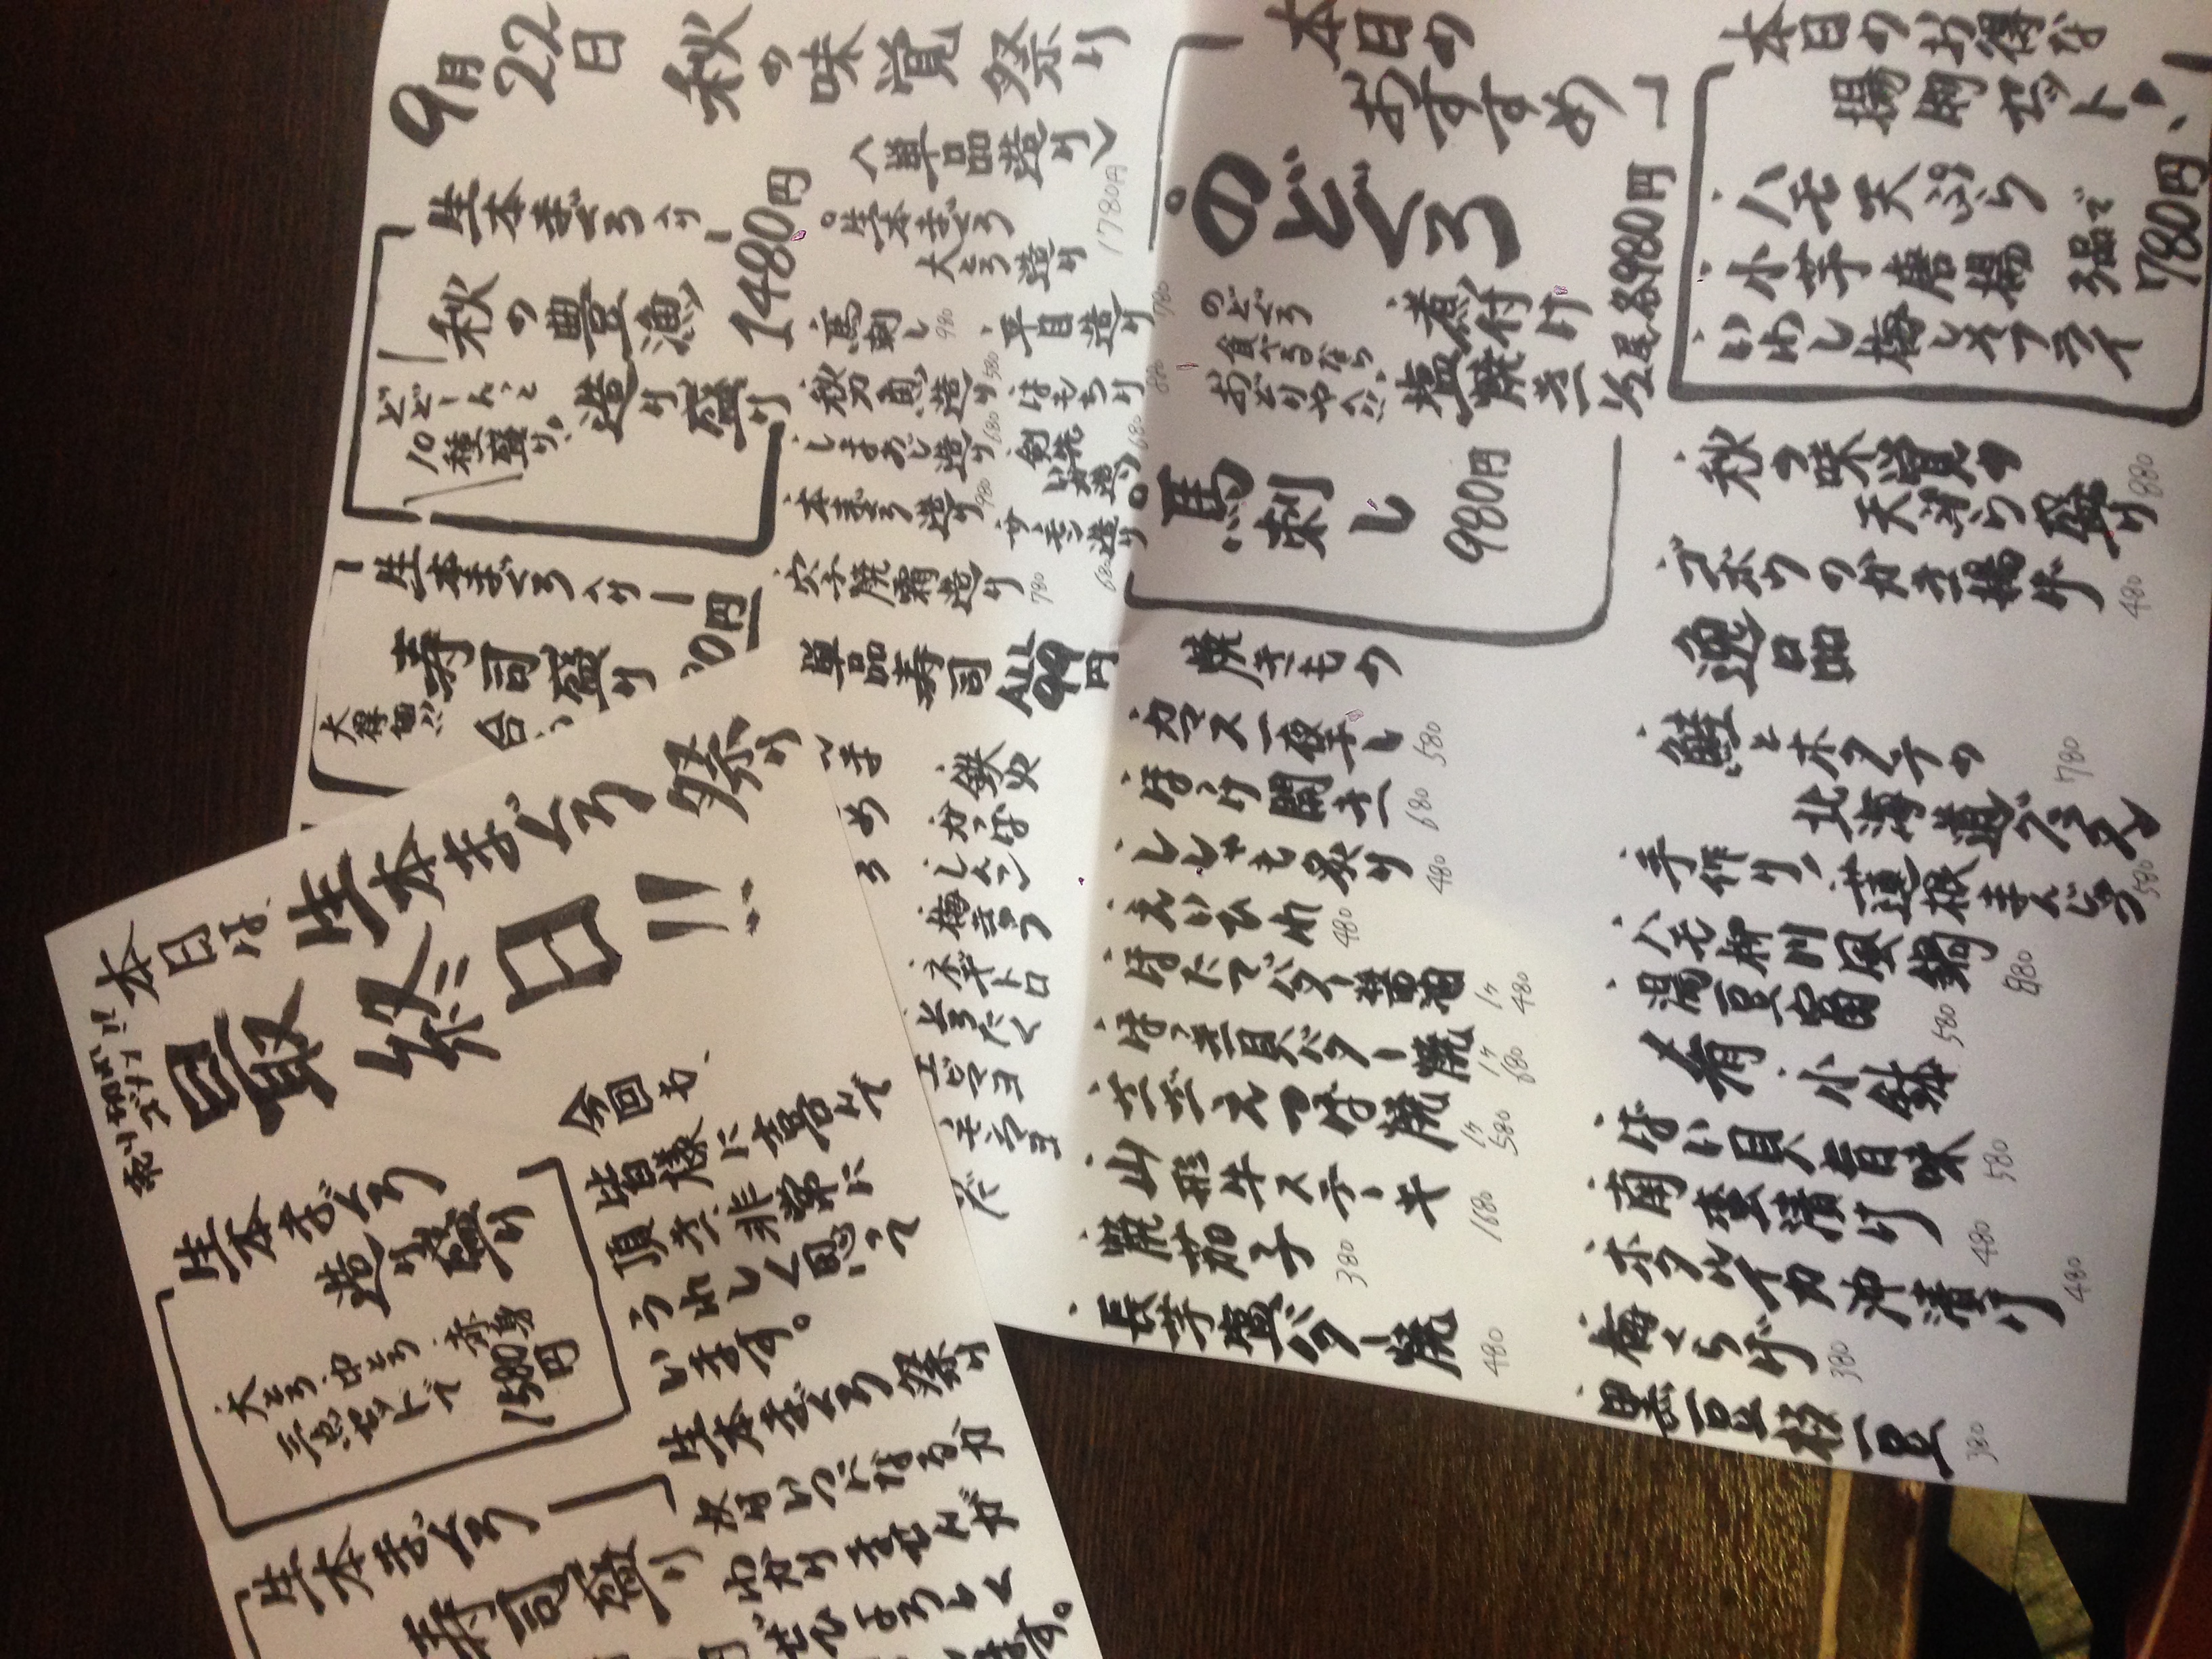 9月22日 秋の味覚祭り
生本まぐろ入り
秋の豊漁
造り盛り
どどーんと
10種盛り。
1480円
生本まぐろ入り
寿司盛り
大得
円
<単品造り>
生本まぐろ
大とろ造り
1780円
馬刺し 980
秋刀魚造り 580
しまあじ造り 680
本まぐろ造り 980
穴子焼霜造り 780
平目造り 780
はもちり 880
剣先いか造り 680
サーモン造り 680
単品寿司 ALL99円
鉄火
かっぱ
しんこ
梅きゅう
ネギトロ
とろたく
エビマヨ
本日の
おすすめ
のどぐろ
のどぐろ
食べるなら、
おどりやへ!!
煮付け
塩焼き
1/2尾各980円
馬刺し
980円
焼きもの
カマス一夜干し 580
ほっけ開き 680
ししゃも炙り 480
えいひれ 480
ほたてバター醤油 1ヶ480
ほっき貝バター焼 1ヶ680
さざえつぼ焼 1ヶ580
山形牛ステーキ 1680
焼茄子 380
長芋塩バター焼 480
本日のお得な
揚物セット
ハモ天ぷら
小芋唐揚
いわし梅しそフライ
3品で
780円
秋の味覚の
天ぷら盛り 880
ごぼうのかき揚げ 480
逸品
鮭とホタテの
北海道グラタン 780
手作り蓮根まんじゅう 580
ハモ柳川風鍋 880
湯豆富 580
肴小鉢
ばい貝旨味 580
南蛮漬け 480
ホタルイカ沖漬け 480
梅くらげ 380
黒豆枝豆 380
本日は、
生本まぐろ祭り
最終日!!
売り切れ
ゴメン!!
生本まぐろ
造り盛り
大とろ・中とろ・赤身
三点セットで
1580円
生本まぐろ
寿司盛り
今回も、
皆様に喜んで
頂き、非常に
うれしく思って
います。
生本まぐろ祭り
次回いつになるか
わかりませんが
ぜひよろしく
ます。